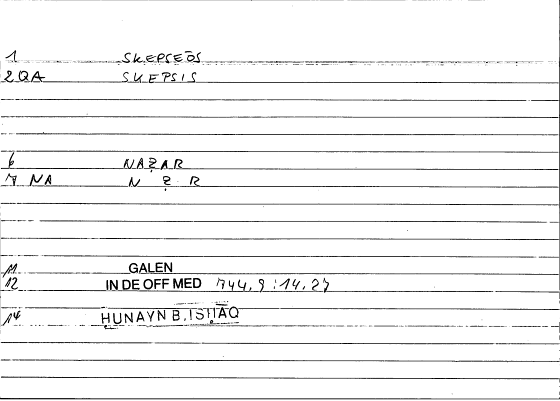 1 SKEPSEŌS
2 QA SKEPSIS
6 NAẒAR
7 NA N Ẓ R
11 GALEN
12 IN DE OFF MED 744,9 : 14,27
14 ḤUNAYN B. ISḤĀQ